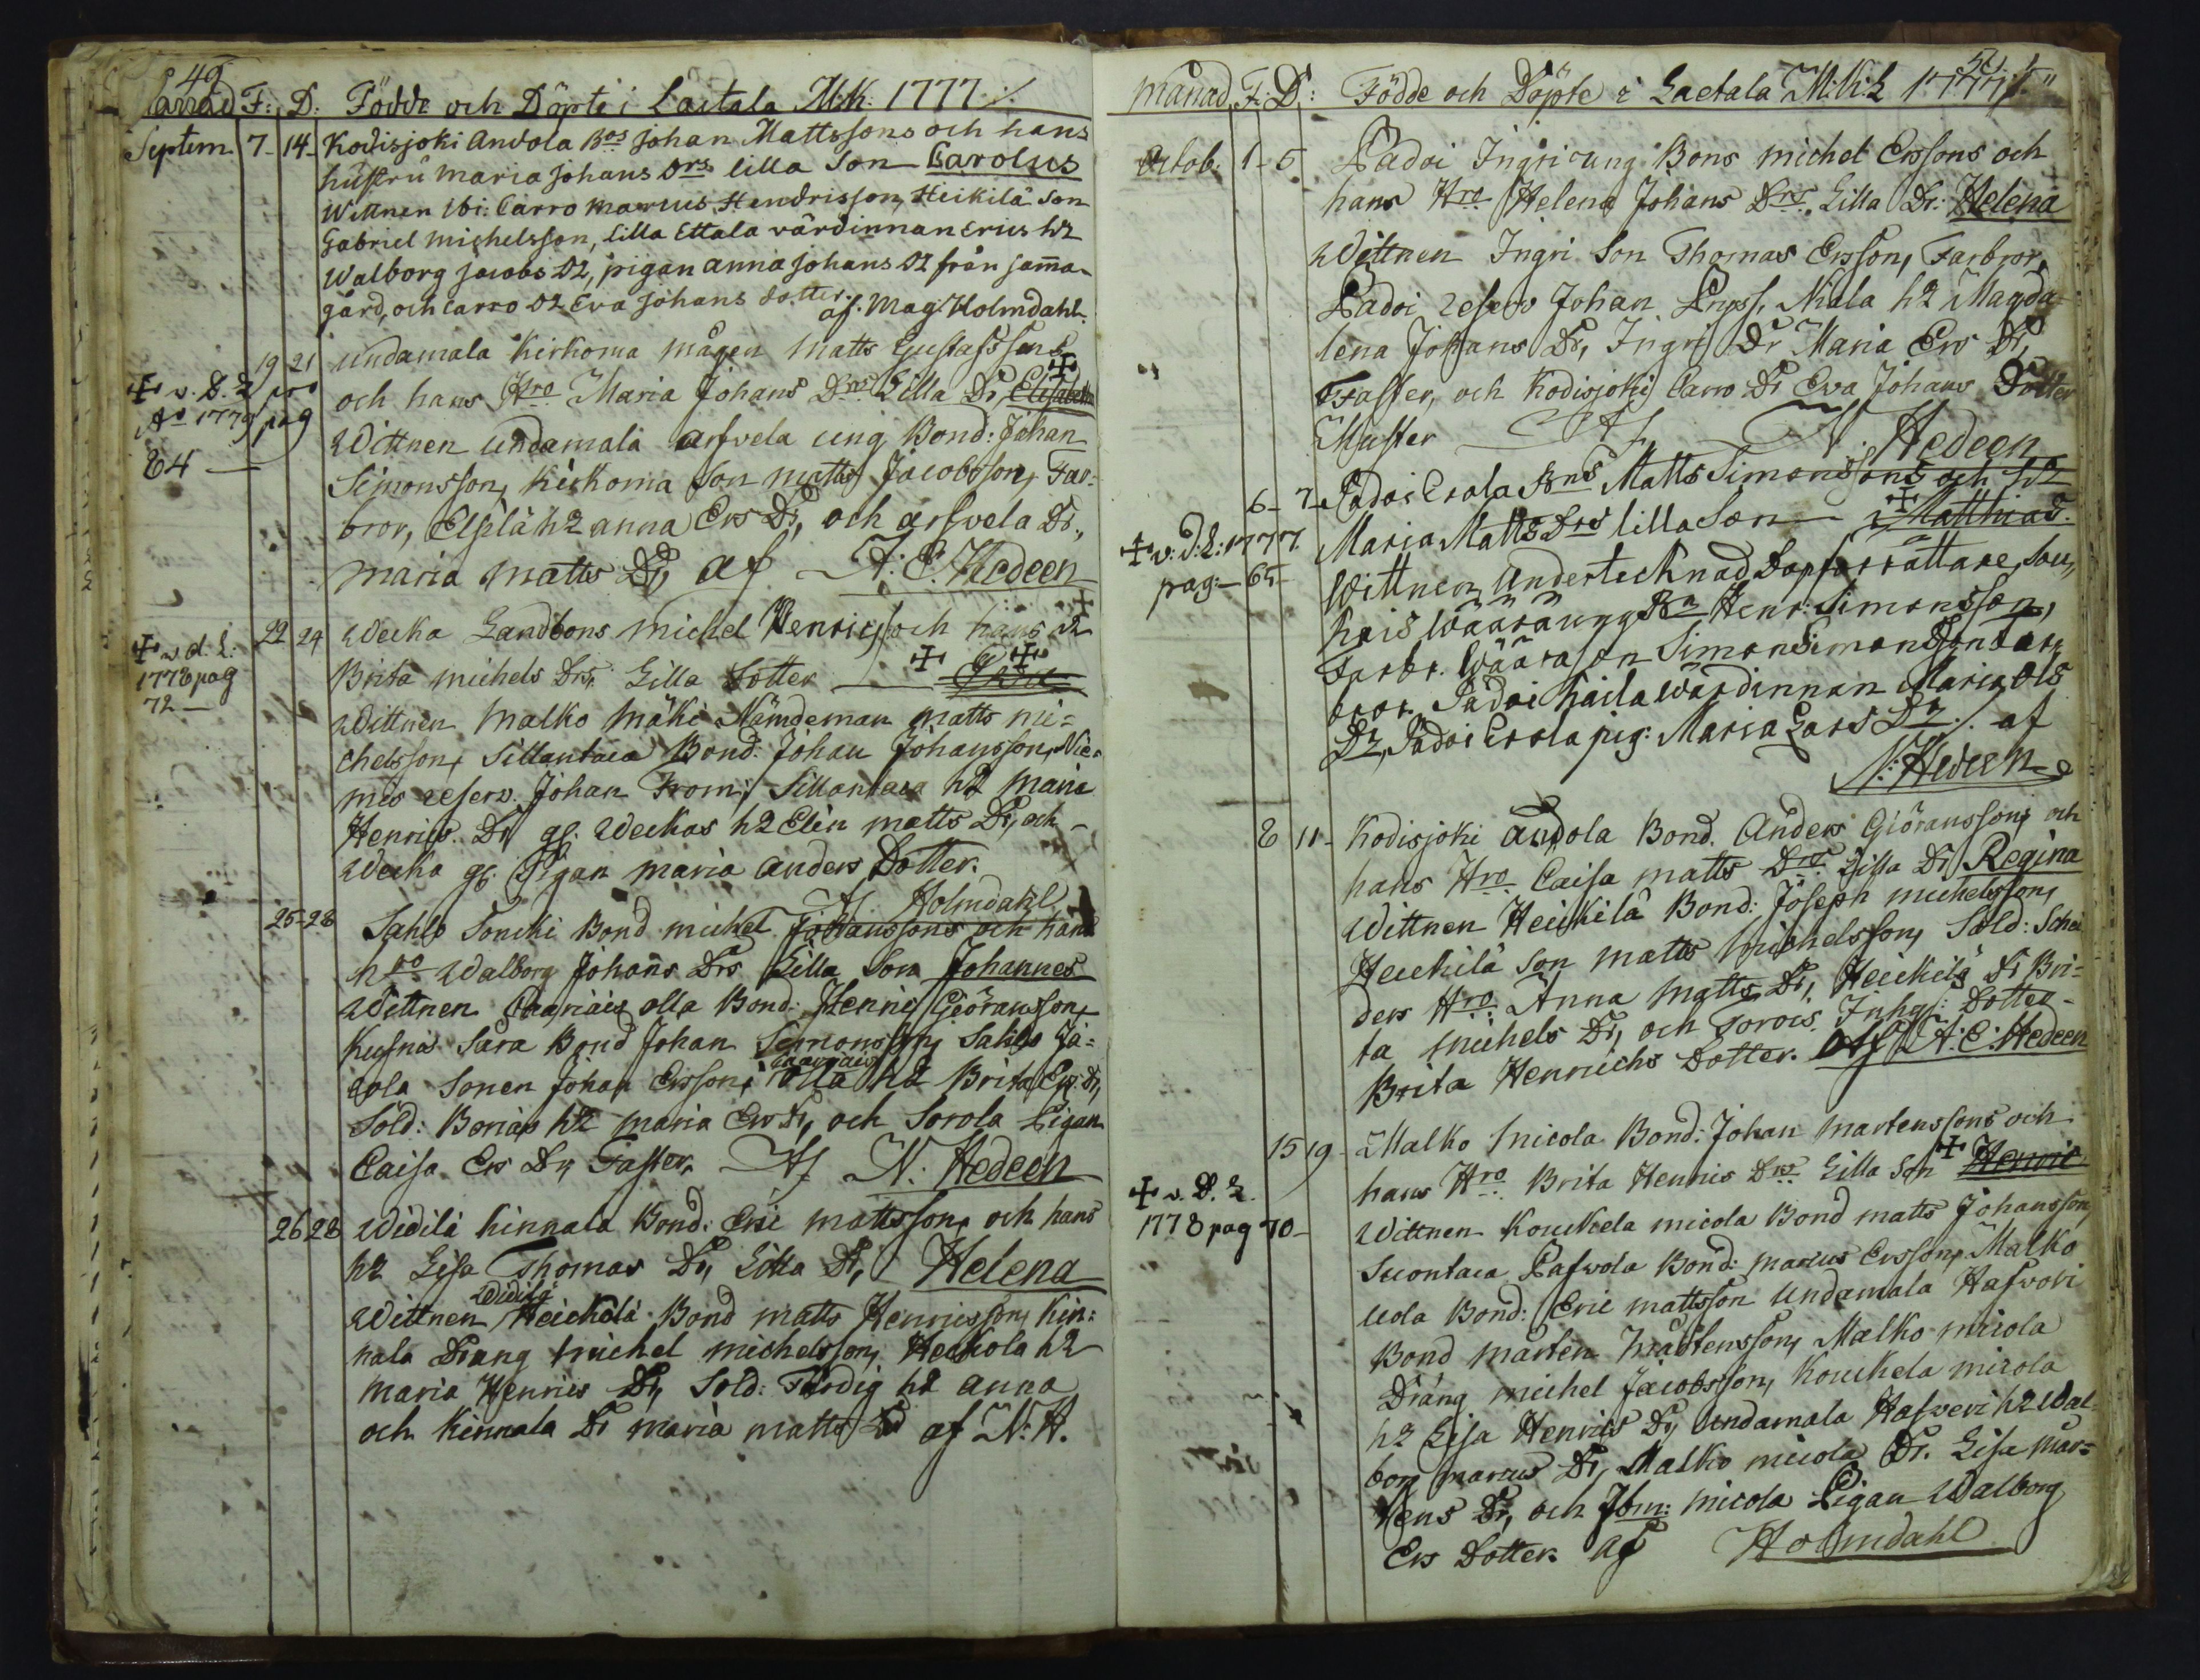 49
Månad F: D: Födde och Döpte i Laetala M:K: 1777 ·/.
Septem. 7- 14- Kodisjoki Andola Bos Johan Mattssons och hans
hustru Maria Johans Drs lilla Son Carolus
Wittnen ibi: Carro Marcus Hendrisson, Heikilä Son
Gabriel Michelsson, lilla Ettala värdinnan Erics h2
Walborg Jacobs D2, pigan Anna Johans D2 från sam̄a-
gård, och Carro D2 Eva Johans dotter.
af. Mag: Holmdahl.
19 21 Undamala Kirkoma mågen Matts Gustafssons
och hans Hro Maria Johans Drs Lilla Dr, Elisabetha
✝ v. D. L pro
Ao 1779 pag
84 —
Wittnen Undamala arfvela ung Bond: Johan
Simonsson, Kirkoma Son Matts Jacobsson, Far-
bror, Elsilä h2 Anna Ers Dr, och arfvela Dr,
Maria Matts Dr, af A: E. Hedeen
22 24 Wecka Landbons Michel Henrics och hans h2
✝ v d. L:
1778 pag
72 —
Brita Michels Drs, Lilla Dotter
Wittnen Malko Mäki Nämdeman Matts Mi-
chelsson, Sillantaca Bond: Johan Johansson, Nie-
mis reserv. Johan From, Sillantaca h2 Maria
Henrics. Dr gl. Weckas h2 Elin Matts Dr, och -
Wecka gl. Pigan Maria Anders Dotter.
Af Holmdahl
25-28 Sahlo Soncki Bond Michel Johanssons och hans
hro Walborg Johans Drs Lilla Son Johannes
Wittnen olla Bond: Henric Giöransson,
Kusnis Sara Bond Johan Simonsson, Sahlo Ja-
cola Sonen Johan Ersson, olla h2 Brita Ers Dr,
Sold: h2 Maria Ers Dr, och Sorola Pigan
Caisa Ers Dr, Faster, Af N. Hedeen
26 28 Widilä Kinnala Bond: Eric Mattsson, och hans
h2 Lisa Thomas Dr, Lilla Dr, Helena
Widilä
Wittnen Heickilä Bond Matts Henricsson, Kin-
nala Dräng Michel Michelsson, Heickola h2
Maria Henrics Dr, Sold: Färdig h2 Anna
och Kinnala Dr Maria Matts Dr af N. H.
Månad F: D: Födde och Döpte i Laetala M:K:L 1777
Octob. 1- 5 Padoi Ingri ung Bons Michel Erssons och
hans Hro Helena Johans Drs Lilla Dr: Helena
Wittnen Ingri Son Thomas Ersson, Farbror,
Padoi reserv Johan Nala h2 Magda-
lena Johans Dr, Ingri Dr Maria Ers Dr,
Faster, och Kodisjoki Carro Dr Eva Johans Dotter
Muster Af N. Hedeen
6- 7- Padoi Erola Bns Matts Simonssons och h2
Maria Matts Drs lilla Son ✝ Matthias.
✝ v: d: L: 1777
pag:- 65-
Wittnen, Undertecknad Dopförrättare, Sou„
kais Wäärä ung Bn Henr: Simonsson,
Farbr. Wäärä son Simon Simonsson Far„
bror. Padoi haila wärdinnan Maria Ols
D2, Padoi Erola pig: Maria Lars D2 /. af
N: Hedeen
8 11- Kodisjoki Andola Bond. Anders Giöransson, och
hans Hro Caisa Matts Drs Lilla Dr Regina
Wittnen Heickilä Bond: Joseph Michelsson,
Heickilä Son Matts Michelsson, Sold: Schei
ders Hro Anna Matts Dr, Heickilä Dr Bri-
ta Michels Dr, och Torois Inhys: Dotter-
Brita Henrichs Dotter. Af A: E: Hedeen
15 19- Malko Micola Bond: Johan Mårtenssons och
hans Hro Brita Henrics Drs Lilla Son ✝ Henric
✝ v. D. L.
1778 pag 70-
Wittnen Kouckela Micola Bond Matts Johansson,
Suontaca Pafwola Bond: Marcus Ersson, Malko
Uola Bond: Eric Mattsson Undamala Hafvori
Bond Mårten Mårtensson, Malko Micola
Dräng Michel Jacobsson, Kouckela Micola
h2 Lisa Henrics Dr, Undamala Hafveri h2 Wal
borg Marcus Dr, Malko Micola Dr. Lisa Mår-
tens Dr, och Ibm: Micola Pigan Walborg
Ers Dotter. Af Holmdahl